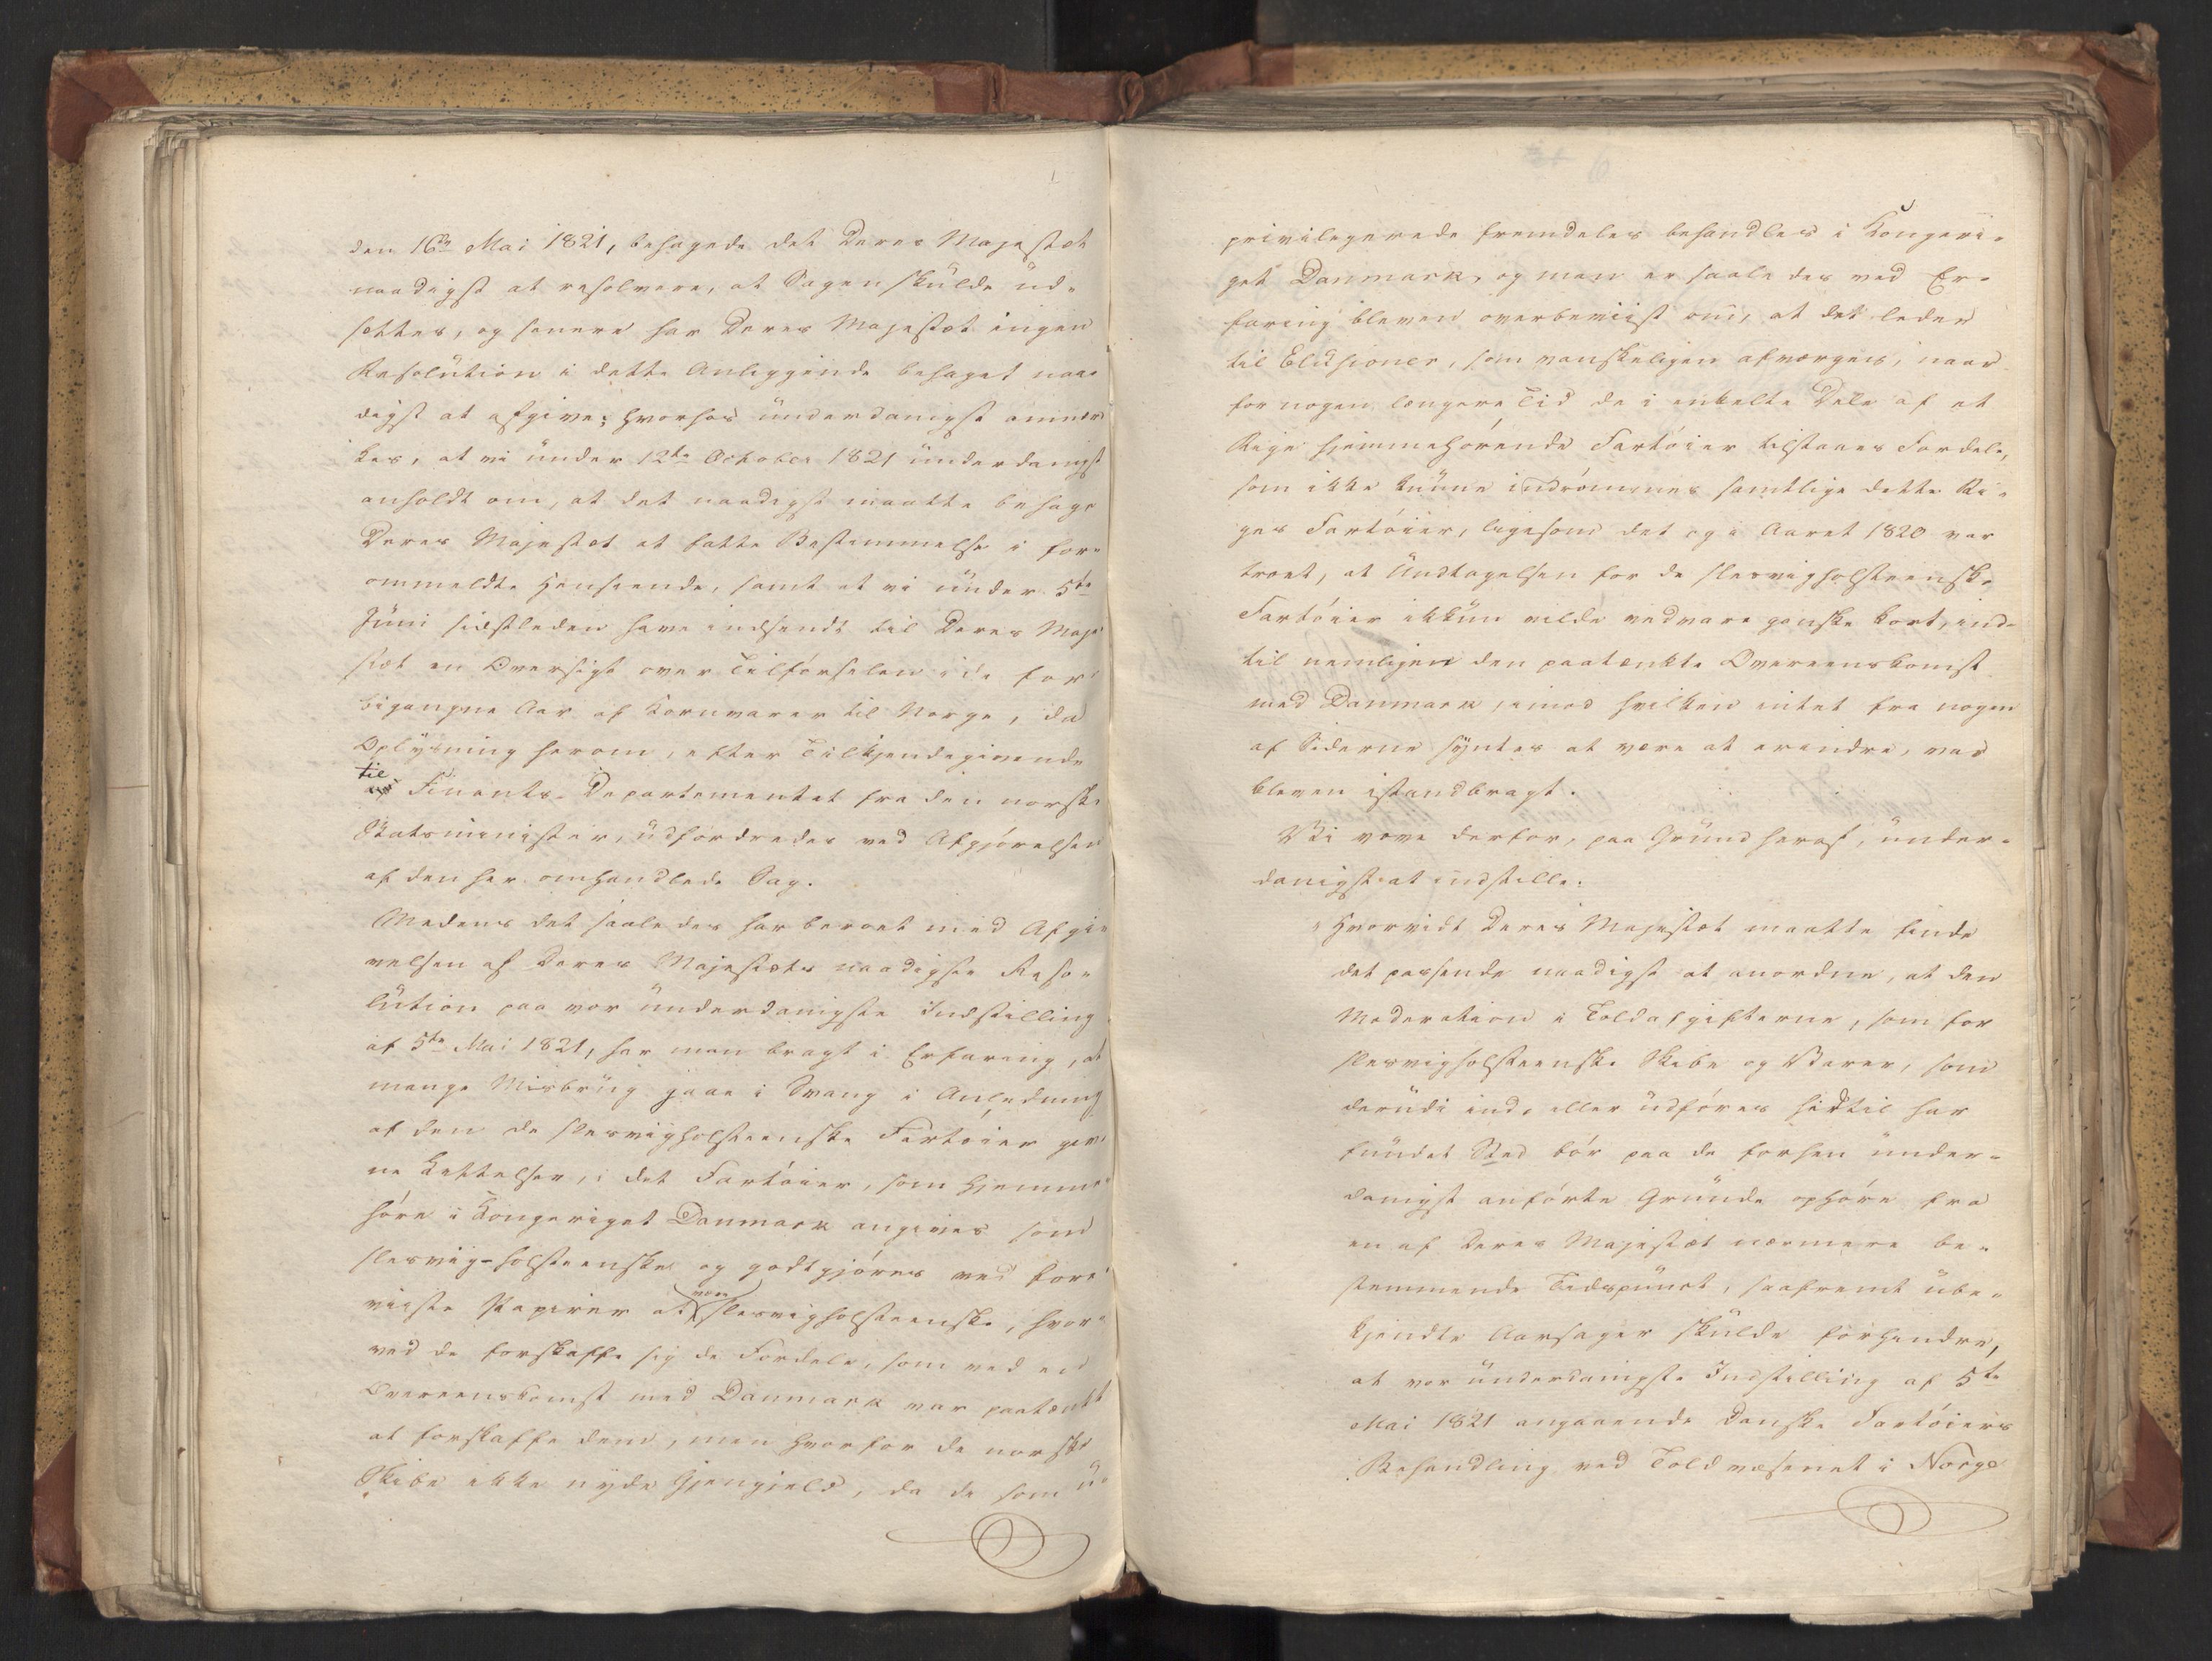 den 16de Mai 1821, behagede det Deres Majestæt
naadigst at resolvere, at Sagen skulde ud-
sættes, og senere har Deres Majestæt ingen
Resolution i dette Anliggende behaget naa-
digst at afgive; hvorhos underdanigst anmær-
kes, at vi under 12te October 1821 underdanigst
anholdt om, at det naadigst maatte behage
Deres Majestæt at fatte Bestemmelse i for-
ommeldte Henseende, samt at vi under 5te
Juni sidstleden have indsendt til Deres Maje-
stæt en Oversigt over Tilførselen i de for-
bigangne Aar af Kornvarer til Norge, da
Oplysning herom, efter Tilkjendegivende
til Finants-Departementet fra den norske
Statsminister, udfordredes ved Afgjørelsen
af den her omhandlede Sag.
Medens det saaledes har beroet med Afgi-
velsen af Deres Majestæts naadigste Reso-
lution paa vor underdanigste Indstilling
af 5te Mai 1821, har man bragt i Erfaring, at
mange Misbrug gaae i Svang i Anledning
af den de slesvigholsteenske Fartøier giv-
ne Lettelser, i det Fartøier, som hjemme-
høre i Kongeriget Danmark angives som
slesvig-holsteenske og godtgjøres ved fore-
viiste Papirer at være slesvigholsteenske, hvor-
ved de forskaffe sig de Fordele, som ved en
Overeenskomst med Danmark var paatænkt
at forskaffe dem, men hvorfor de norske
Skibe ikke nyde Gjengjeld, da de som u-
6
privilegerede fremdeles behandles i Kongeri-
get Danmark, og man er saaledes ved Er-
faring bleven overbeviist om, at det leder
til Elusioner, som vanskeligen afværges, naar
for nogen længere Tid de i enkelte Dele af et
Rige hjemmehørende Fartøier tilstaaes Fordele,
som ikke kunne indrømmes samtlige dette Ri-
ges Fartøier, ligesom det og i Aaret 1820 var
troet, at Undtagelsen for de slesvigholsteenske
Fartøier ikkun vilde vedvare ganske kort, ind-
til nemligen den paatænkte Overeenskomst
med Danmark, imod hvilken intet fra nogen
af Siderne syntes at være at erindre, var
bleven istandbragt.
Vi vove derfor, paa Grund heraf, under-
danigst at indstille:
"Hvorvidt Deres Majestæt maatte finde
det passende naadigst at anordne, at den
Moderation i Toldafgifterne, som for
slesvigholsteenske Skibe og Varer, som
derudi ind- eller udføres hidtil har
fundet Sted bør paa de forhen under-
danigst anførte Grunde ophøre fra
en af Deres Majestæt nærmere be-
stemmende Tidspunct, saafremt ube-
kjendte Aarsager skulde forhindre,
at vor underdanigste Indstilling af 5te
Mai 1821 angaaende Danske Fartøiers
Behandling ved Toldvæsenet i Norge